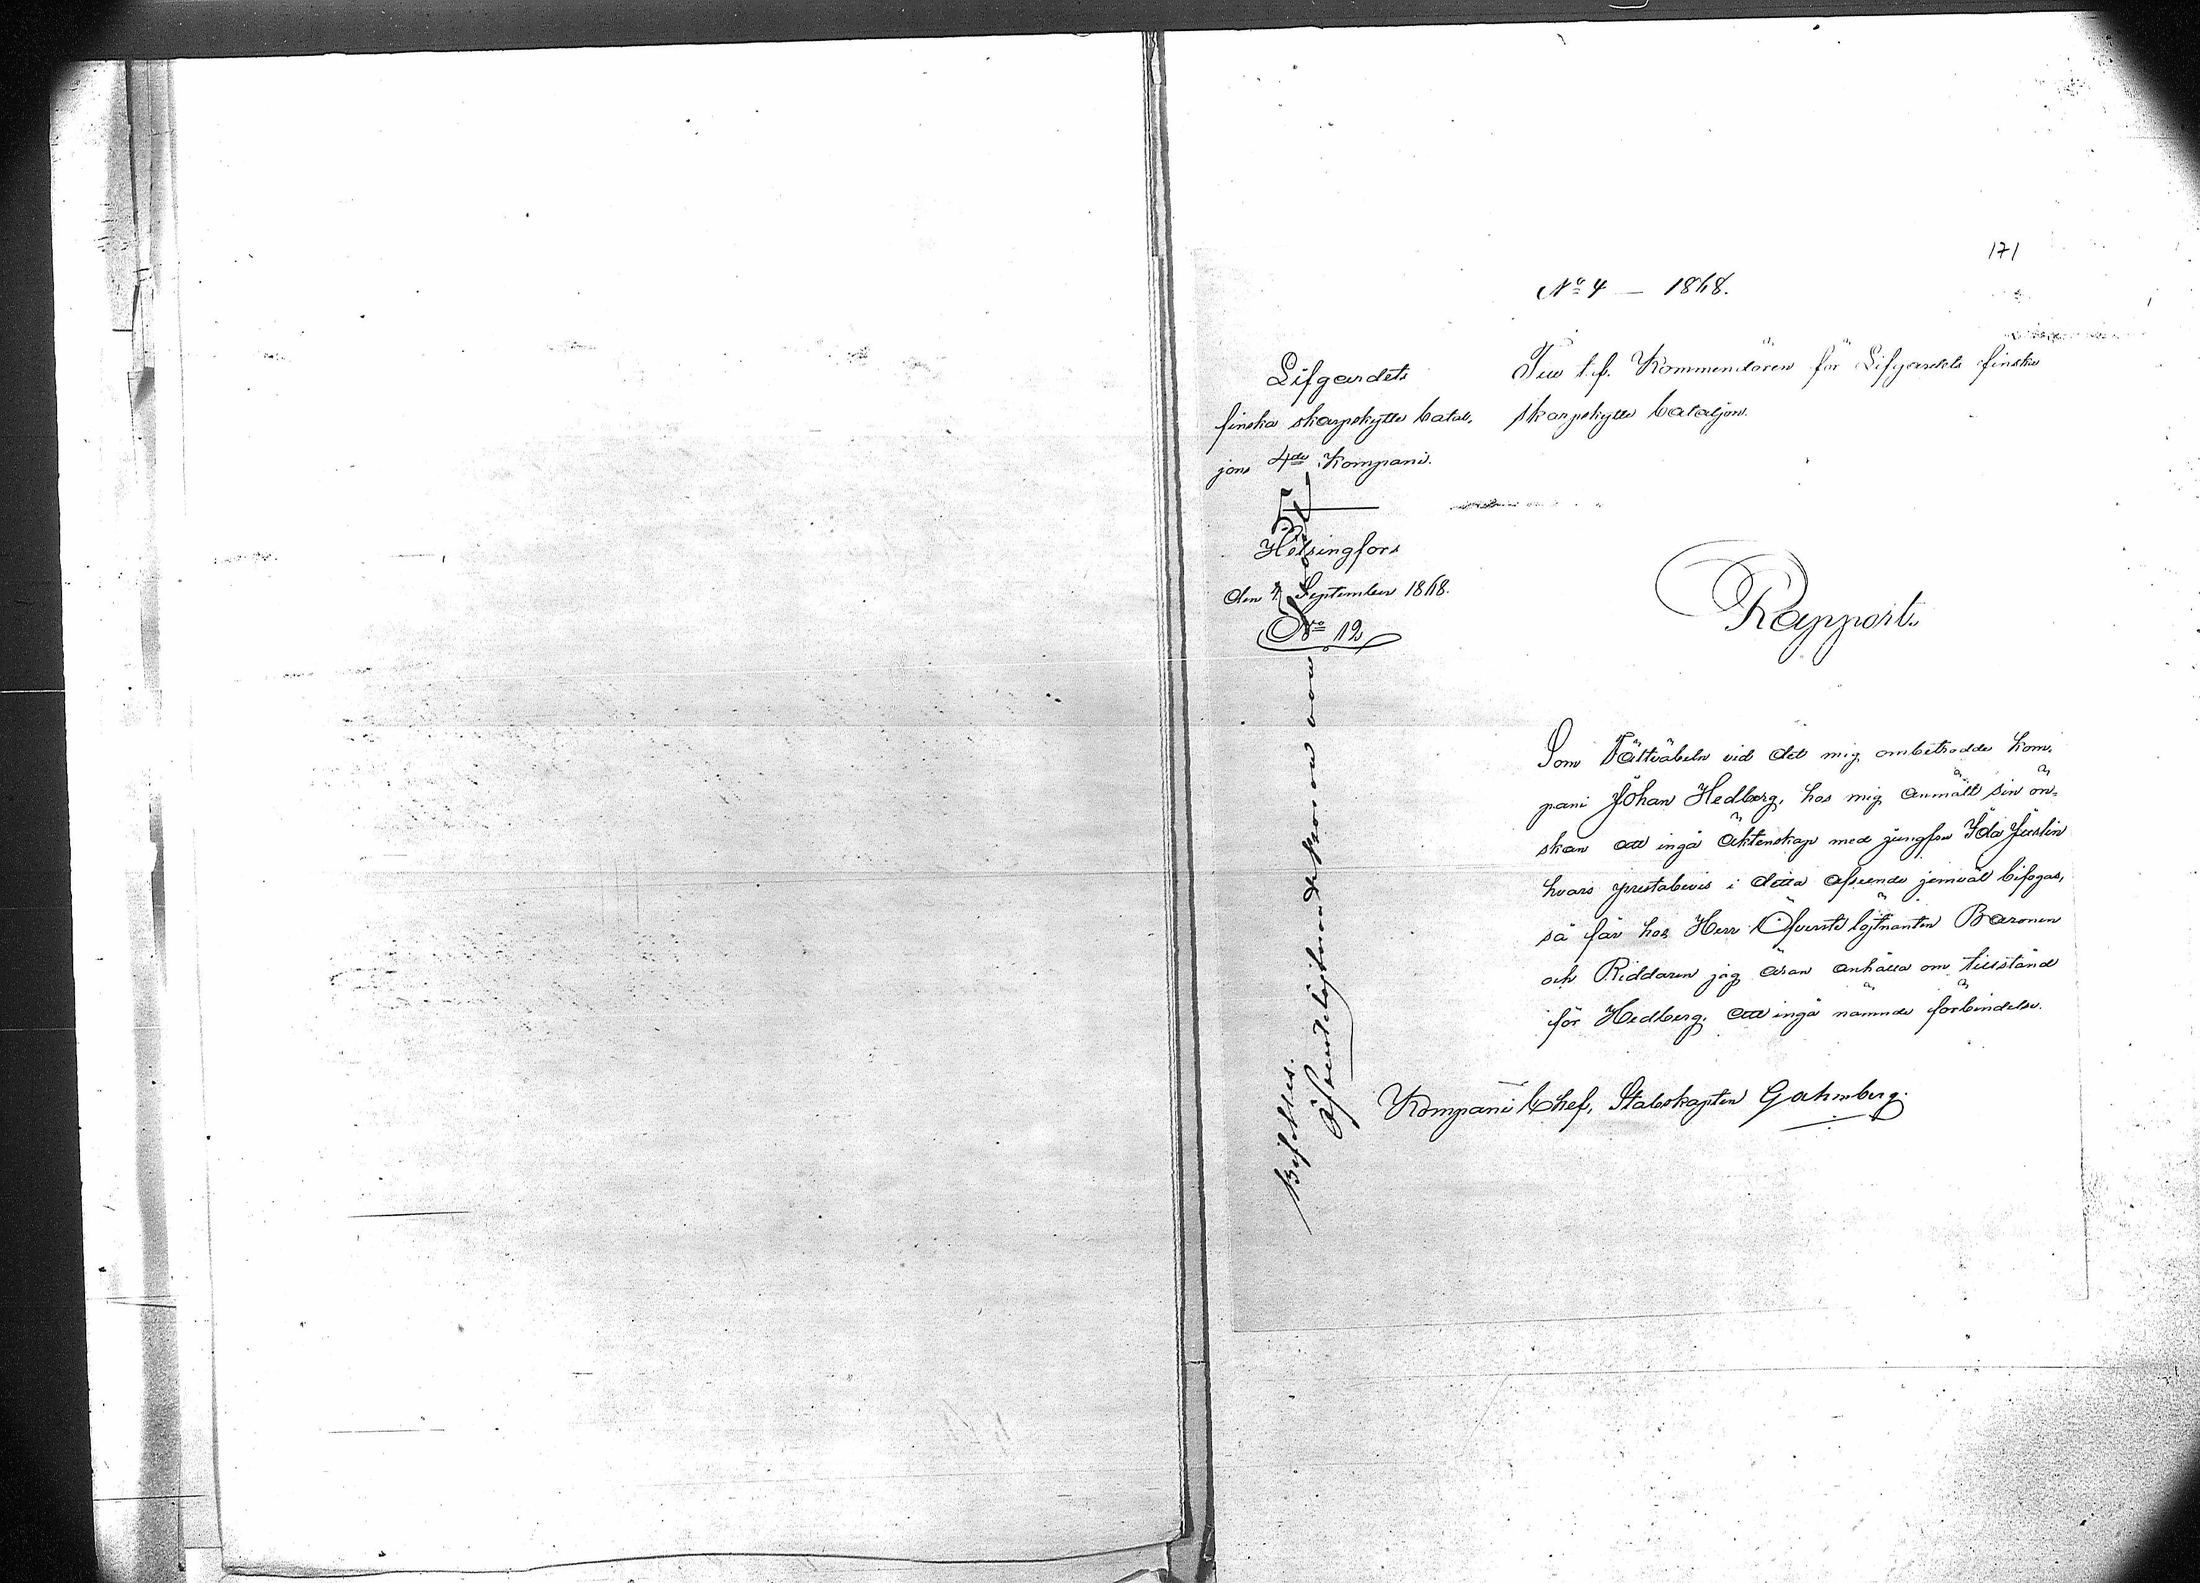 171
No 4 — 1868.
Lifgardets
finska skarpskytte batal-
jons 4de Kompani.
Helsingfors
den 4 September 1868.
No 12
Till t.f. Kommendören för Lifgardets finska
skarpskytte bataljon.
Rapport.
Som Fältväbeln vid det mig anbetrodda kom-
pani Johan Hedberg, hos mig anmält sin ön-
skan att ingå äktenskap med jungfru Ida Juslin
hvars prestabevis i detta afseende jemväl bifogas,
så får hos Herr Öfverstelöjtnanten Baronen
och Riddaren jag äran anhålla om tillstånd
för Hedberg, att ingå nämnde förbindelse.
Kompani Chef, Stabskapten Gahmberg.
Bifalles.
Öfverstelöjtnant